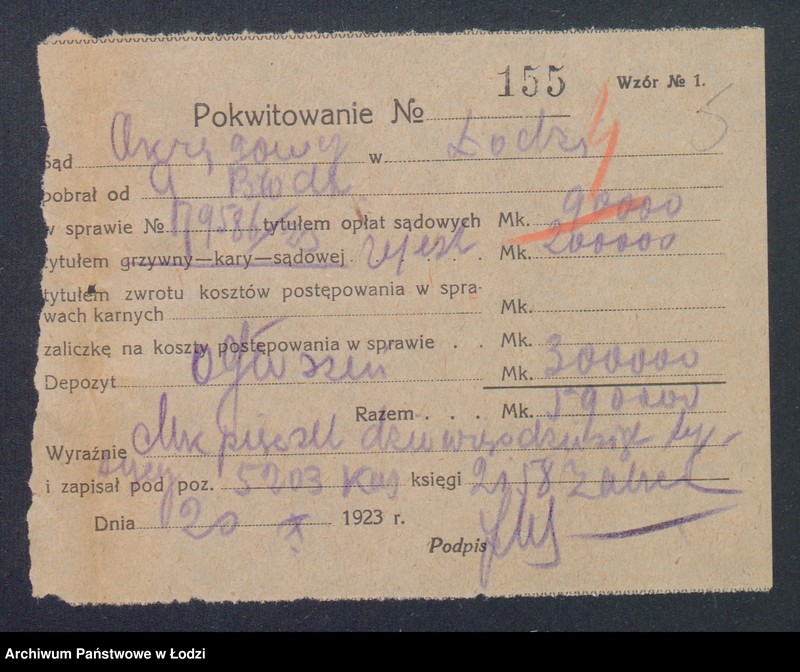 155
Wzór № 1.
5
Pokwitowanie №
Sąd Okręgowy w Łodzi
pobrał od Brode
w sprawie № tytułem opłat sądowych Mk. 90000
tytułem grzywny—kary—sądowej rejest . . Mk. 200000
tytułem zwrotu kosztów postępowania w spra-
wach karnych Mk.
zaliczkę na koszty postępowania w sprawie . . Mk.
Depozyt ogłoszeń Mk. 300000
Razem . . . Mk. 590000
Wyraźnie Mk pięćset dziewięćdziesiąt ty-
sięcy
i zapisał pod poz. 5203 Kas księgi 2158
Dnia 20 X 1923 r.
Podpis
Archiwum Państwowe w Łodzi